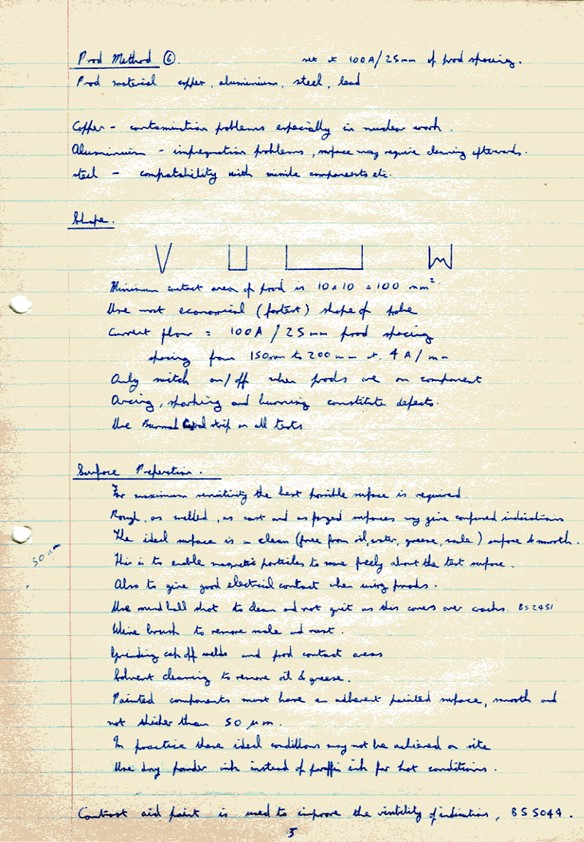 Prod Method 6. set to 100A/25mm of prod spacing.
Prod material copper, aluminium, steel, lead
Copper - contamination problems especially in nuclear work.
Aluminium - impregnation problems, surface may require cleaning afterwards.
steel - compatability with missile components etc.
Shape.
Minimum contact area of prod is 10x10 = 100 mm²
Use most economical (fastest) shape of probe
Current flow = 100A / 25mm prod spacing
spacing from 150mm to 200mm 4A/mm
Only switch on/off when prods are on component
Arcing, sparking and burning constitute defects.
Use Burmah Castrol strip on all tests
Surface Preperation.
For maximum sensitivity the best possible surface is required.
Rough, as welded, as cast and as forged surfaces may give confused indications
The ideal surface is clean (free from oil, water, grease, scale) surface & smooth.
50 µm
This is to enable magnetic particles to move freely about the test surface.
Also to give good electrical contact when using prods.
Use round ball shot to clean and not grit as this covers over cracks. BS2451
Wire brush to remove scale and rust.
Grinding of welds and prod contact areas
Solvent cleaning to remove oil & grease.
Painted components must have an adherent painted surface, smooth and
not thicker than 50 µm.
In practice these ideal conditions may not be achieved on site
Use dry powder ink instead of paraffin ink for hot conditions.
Contrast aid paint is used to improve the visibility of indications, BS5044.
5